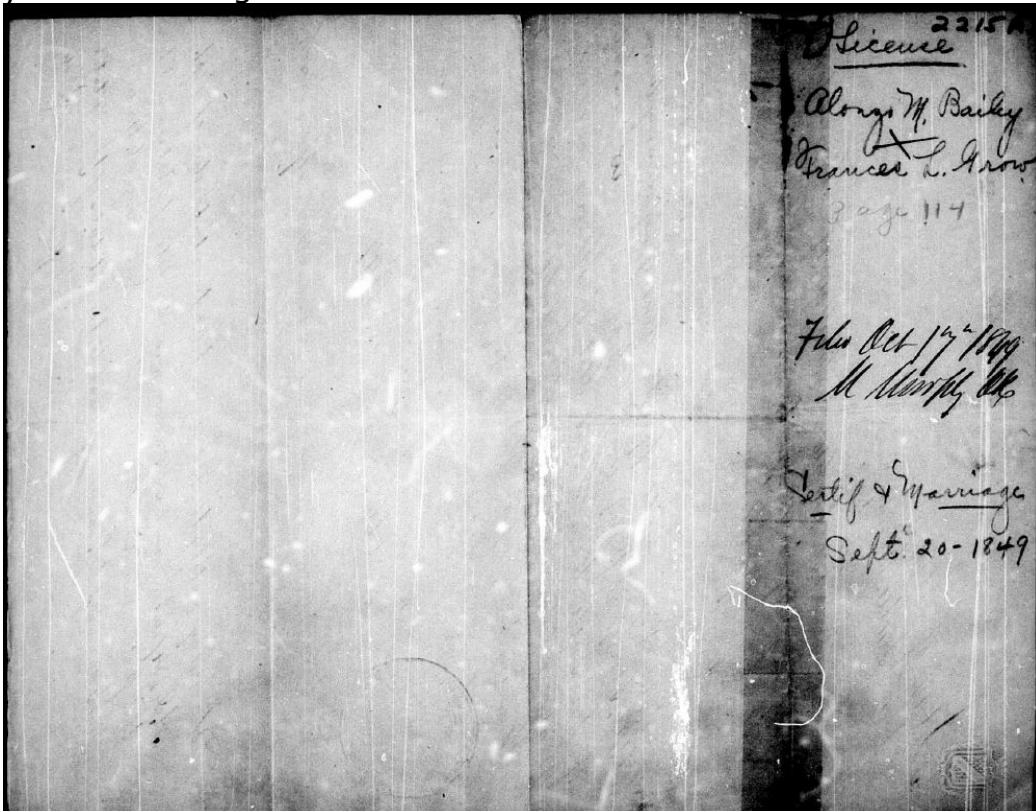 2215
License
Alonzo M. Bailey
Frances L. Grow
Page 114
Oct 17" 1849
Certif & Marriage
Sept. 20-1849